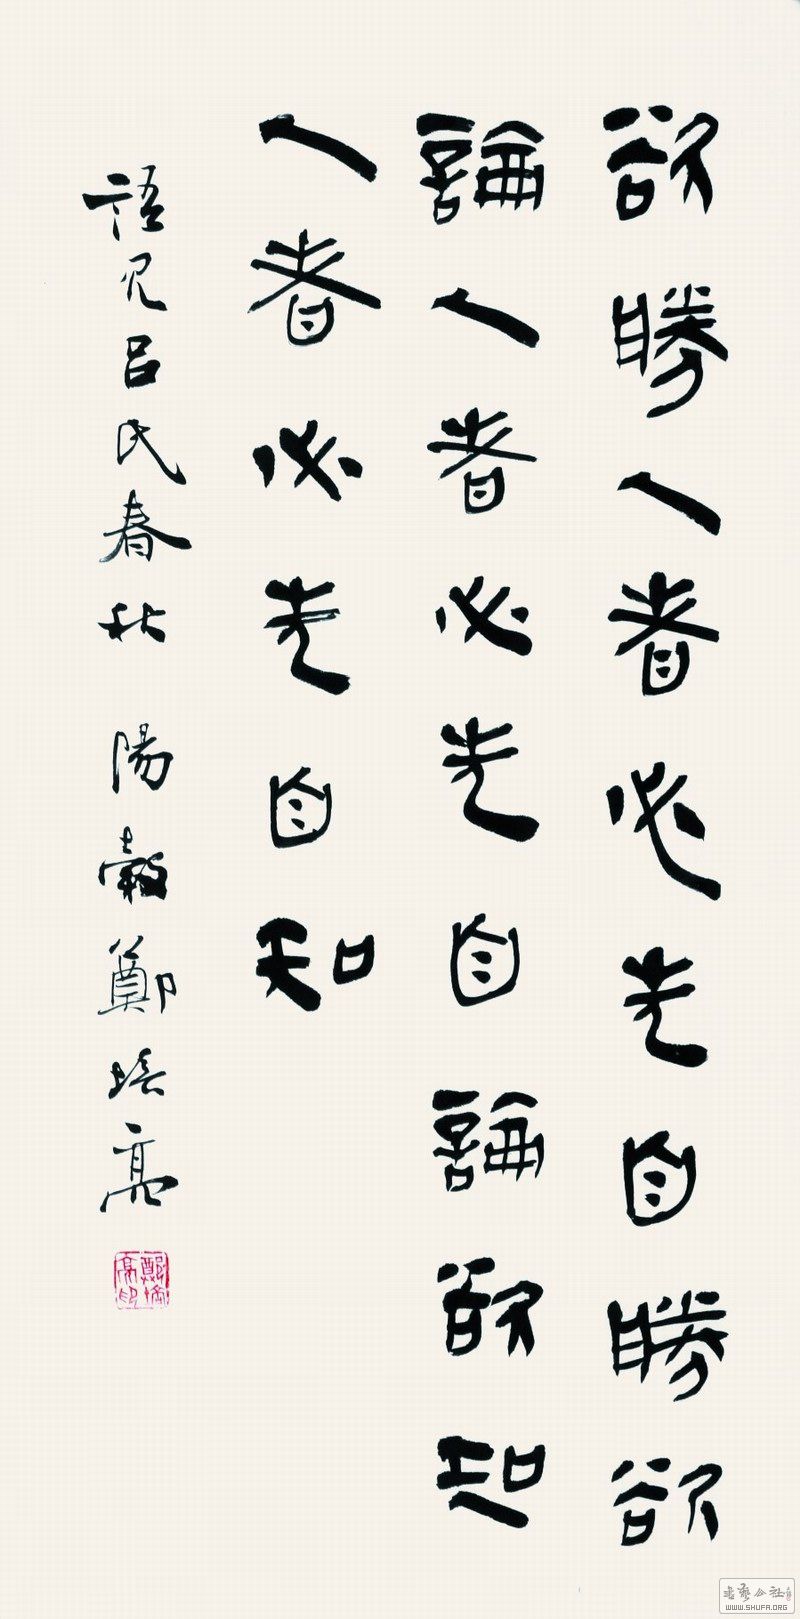 欲勝人者必先自勝欲
論人者必先自論欲知
人者必先自知
語見呂氏春秋 陽穀鄭培亮
鄭培亮印
書藝公社
WWW.SHUFA.ORG